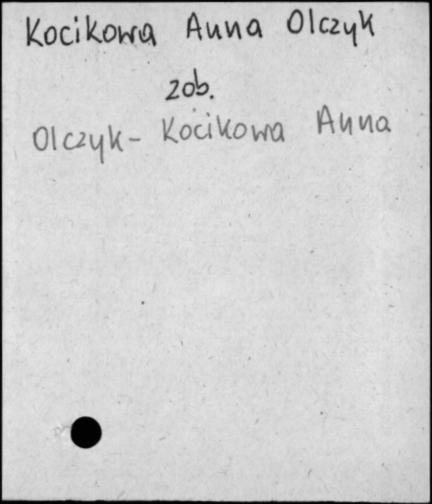 Kocikowa Anna Olczyk
zob.
Olczyk- Kocikowa Anna